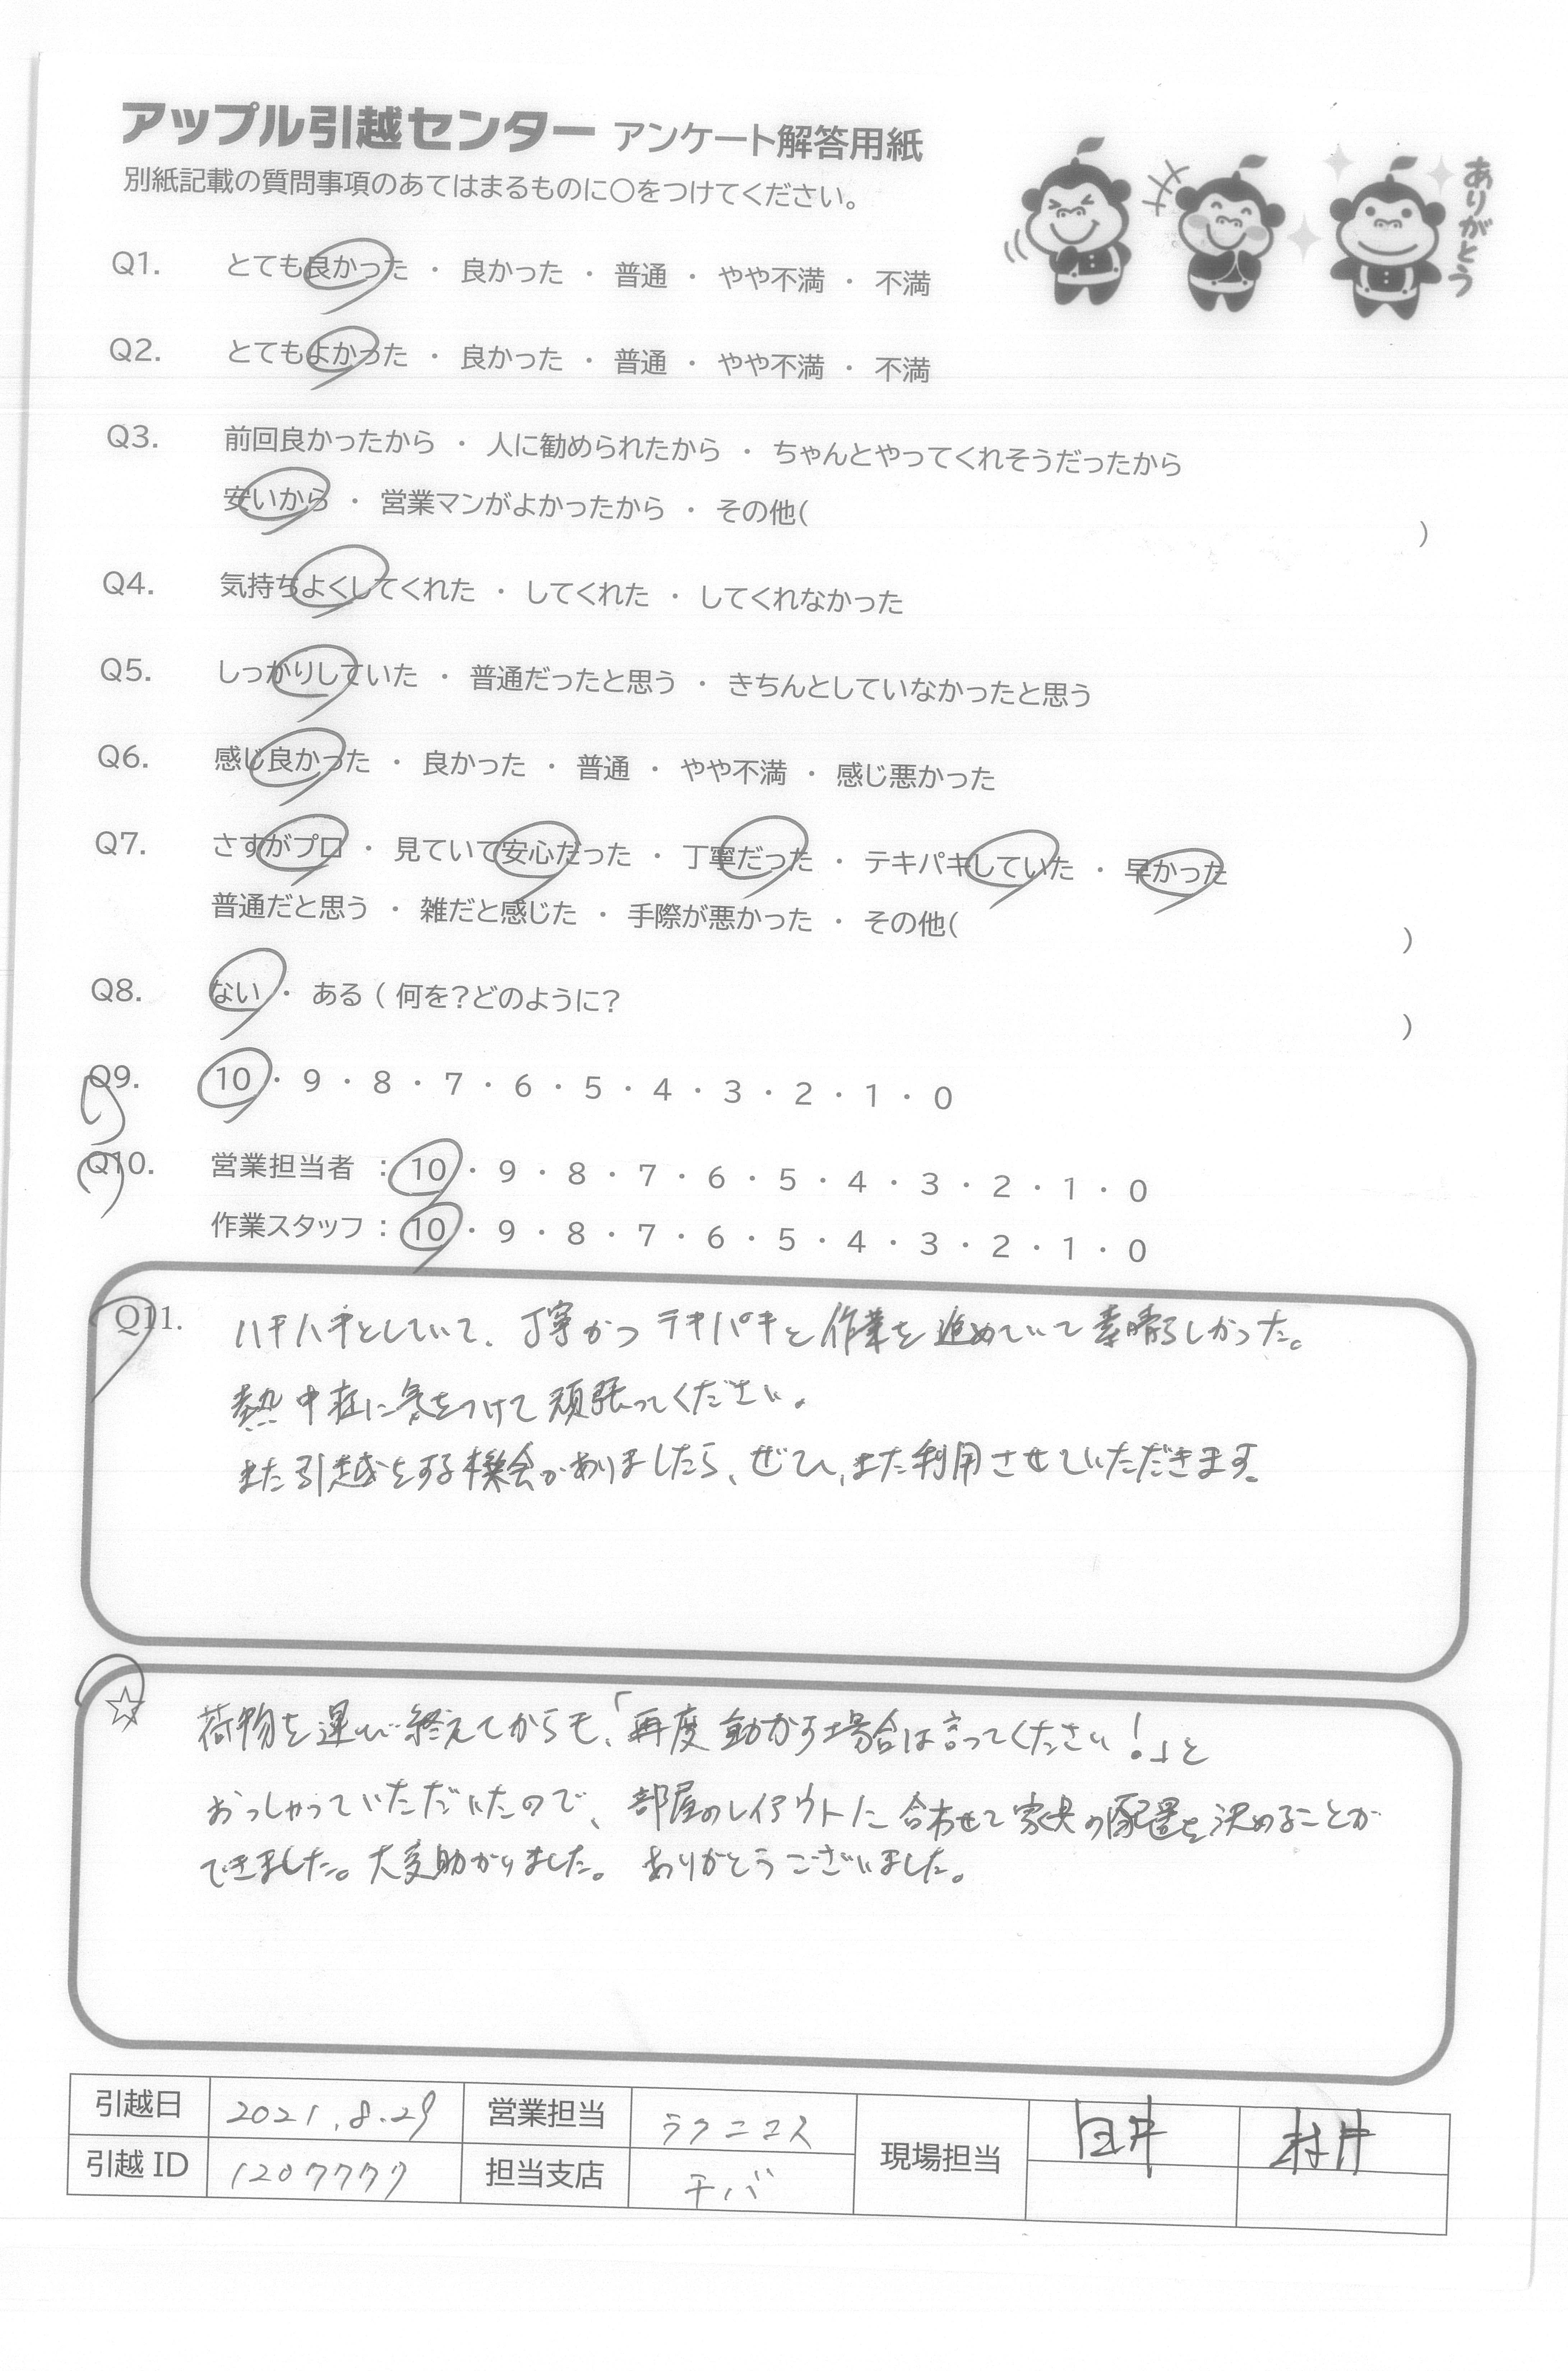 アップル引越センター アンケート解答用紙
別紙記載の質問事項のあてはまるものに○をつけてください。
ありがとう
Q1. とても良かった ・ 良かった ・ 普通 ・ やや不満 ・ 不満
Q2. とてもよかった ・ 良かった ・ 普通 ・ やや不満 ・ 不満
Q3. 前回良かったから ・ 人に勧められたから ・ ちゃんとやってくれそうだったから
安いから ・ 営業マンがよかったから ・ その他( )
Q4. 気持ちよくしてくれた ・ してくれた ・ してくれなかった
Q5. しっかりしていた ・ 普通だったと思う ・ きちんとしていなかったと思う
Q6. 感じ良かった ・ 良かった ・ 普通 ・ やや不満 ・ 感じ悪かった
Q7. さすがプロ ・ 見ていて安心だった ・ 丁寧だった ・ テキパキしていた ・ 早かった
普通だと思う ・ 雑だと感じた ・ 手際が悪かった ・ その他( )
Q8. ない ・ ある ( 何を?どのように? )
Q9. 10 ・ 9 ・ 8 ・ 7 ・ 6 ・ 5 ・ 4 ・ 3 ・ 2 ・ 1 ・ 0
Q10. 営業担当者 : 10 ・ 9 ・ 8 ・ 7 ・ 6 ・ 5 ・ 4 ・ 3 ・ 2 ・ 1 ・ 0
作業スタッフ : 10 ・ 9 ・ 8 ・ 7 ・ 6 ・ 5 ・ 4 ・ 3 ・ 2 ・ 1 ・ 0
Q11. ハキハキとしていて、丁寧かつテキパキと作業を進めていて素晴らしかった。
熱中症に気をつけて頑張ってください。
また引越をする機会がありましたら、ぜひ、また利用させていただきます。
☆ 荷物を運び終えてからも、「再度動かす場合は言ってください!」と
おっしゃっていただいたので、部屋のレイアウトに合わせて家具の配置を決めることが
できました。大変助かりました。ありがとうございました。
引越日 2021.8.29 営業担当 ラクニコス 現場担当 臼井 村井
引越 ID 1207777 担当支店 チバ